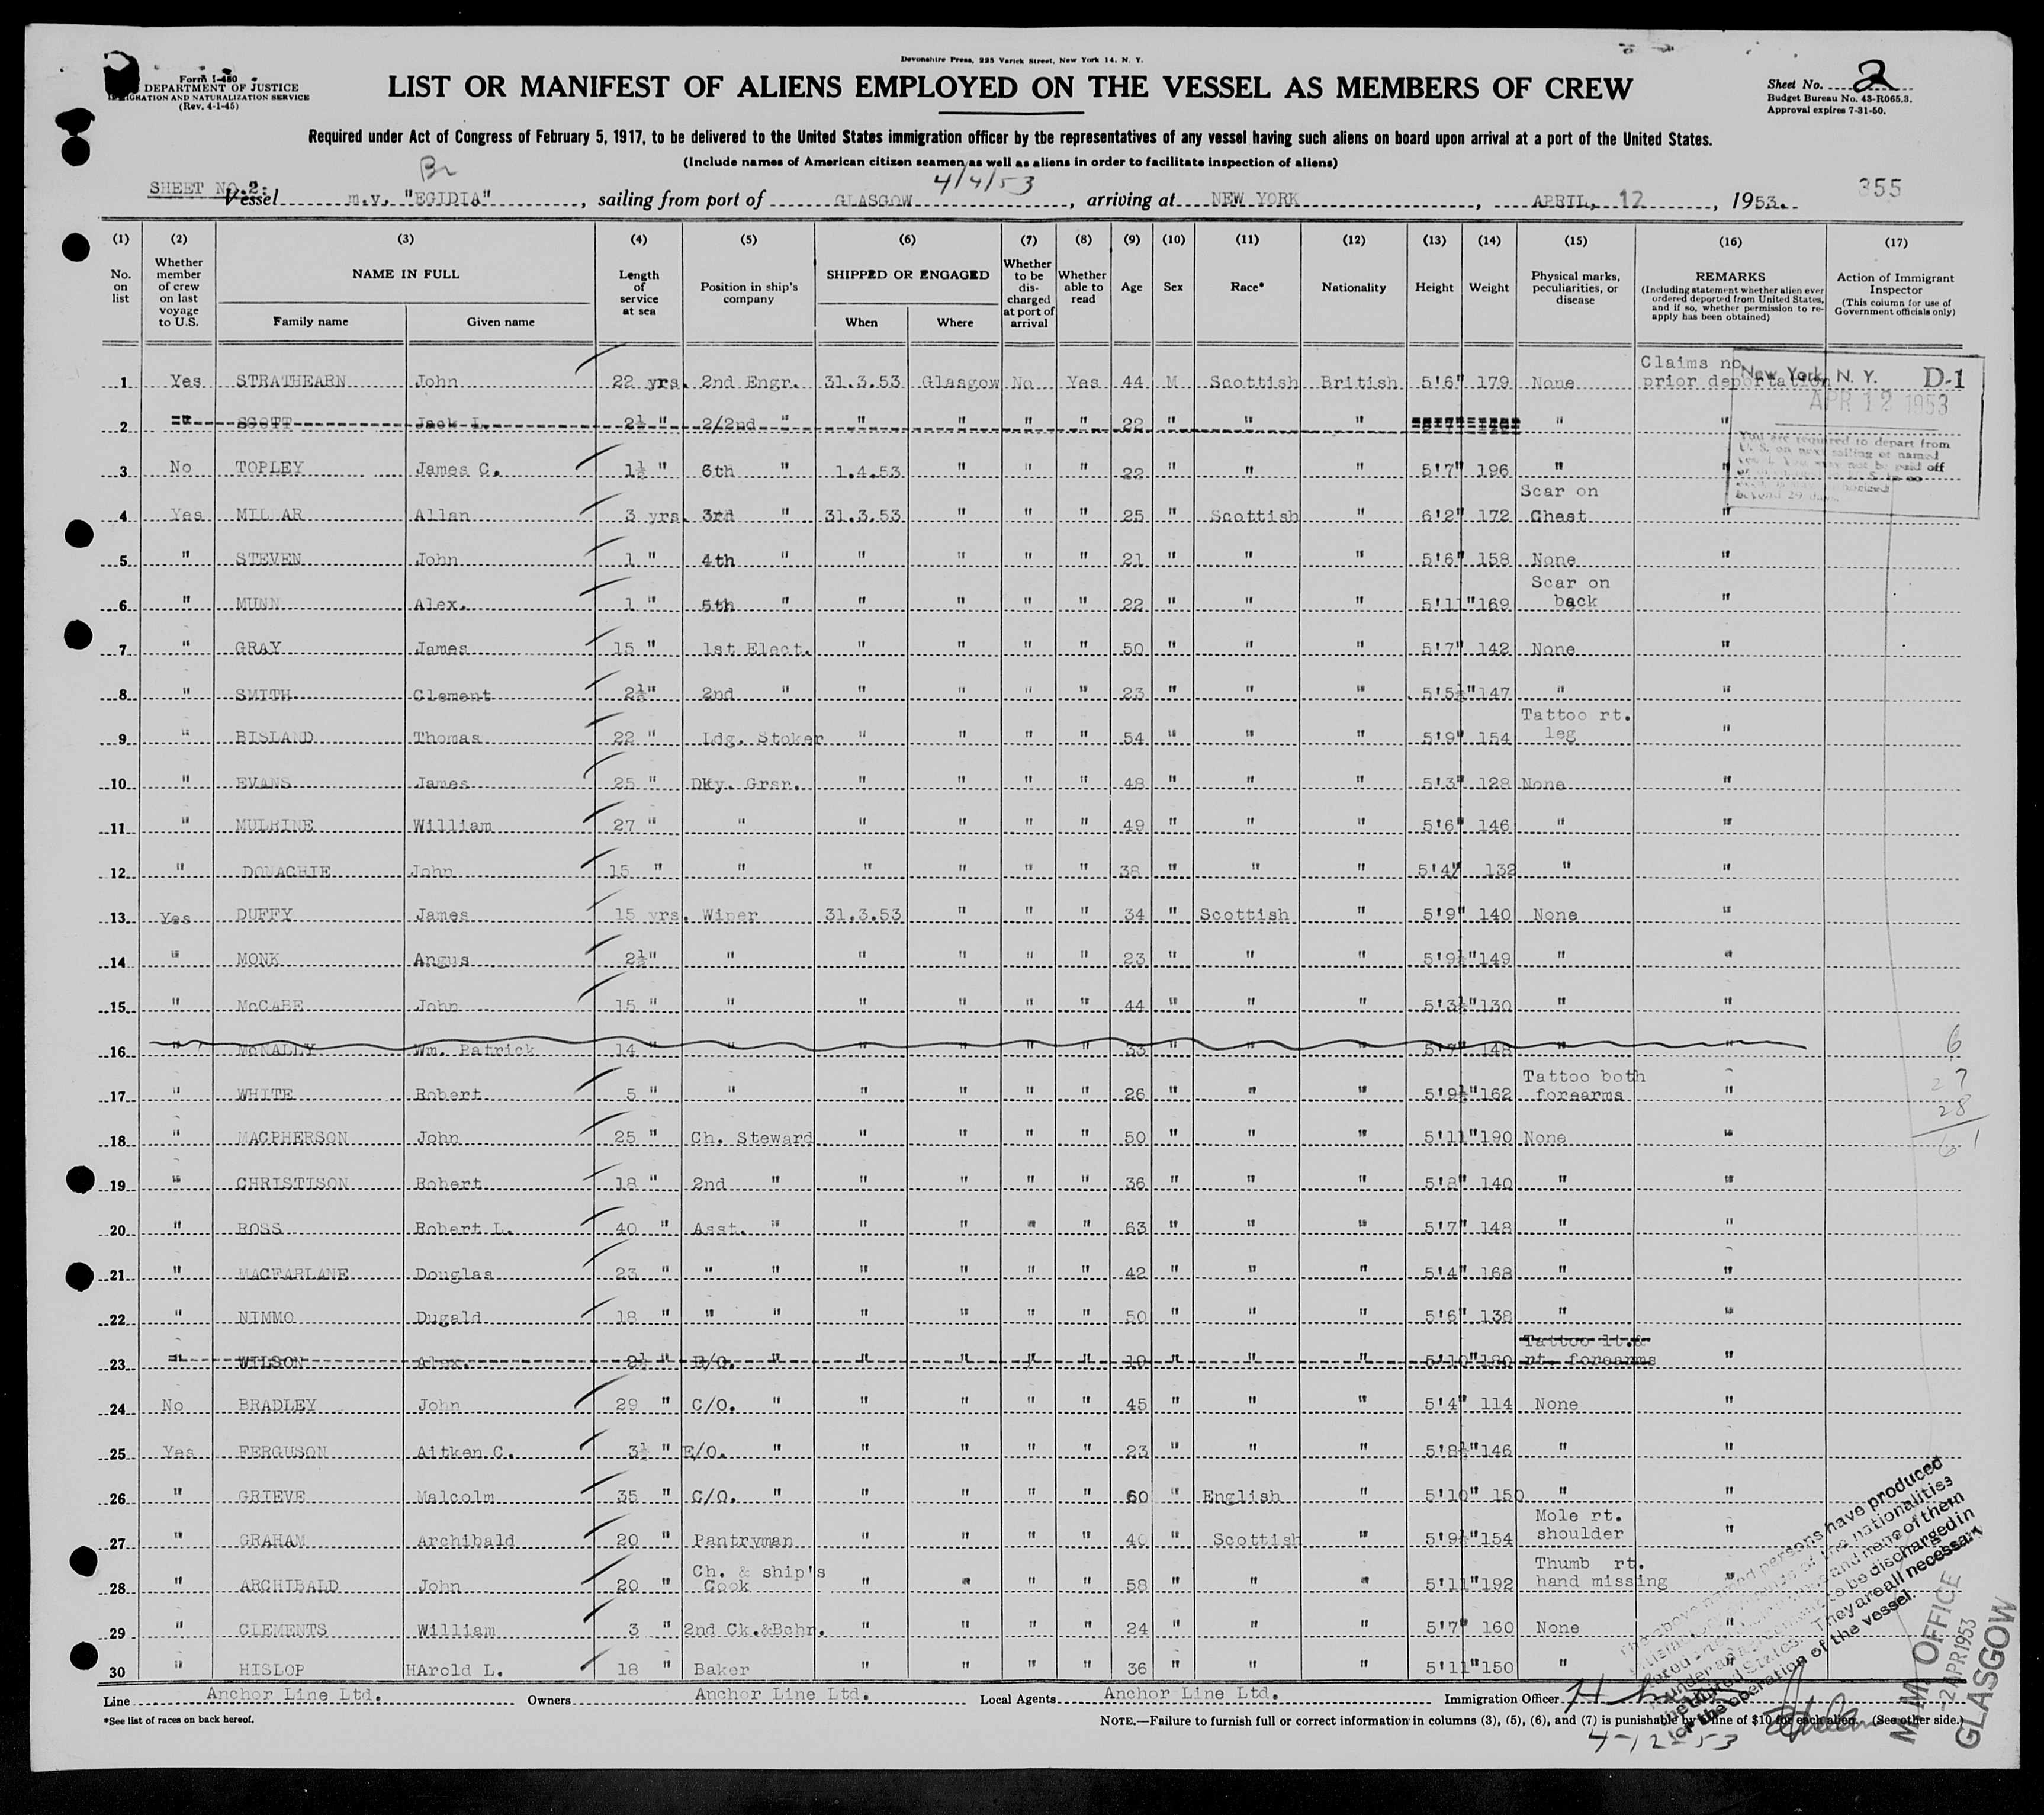 Devonshire Press, 225 Varick Street, New York 14, N. Y.
Form I-480
DEPARTMENT OF JUSTICE
IMMIGRATION AND NATURALIZATION SERVICE
(Rev. 4-1-45)
LIST OR MANIFEST OF ALIENS EMPLOYED ON THE VESSEL AS MEMBERS OF CREW
Sheet No. 2
Budget Bureau No. 43-R065.3.
Approval expires 7-31-50.
Required under Act of Congress of February 5, 1917, to be delivered to the United States immigration officer by the representatives of any vessel having such aliens on board upon arrival at a port of the United States.
(Include names of American citizen seamen as well as aliens in order to facilitate inspection of aliens)
Br 4/4/53
SHEET NO.2: 355
Vessel m.v. "EGIDIA", sailing from port of GLASGOW, arriving at NEW YORK, APRIL, 12, 1953.
(1) No. on list
(2) Whether member of crew on last voyage to U.S.
(3) NAME IN FULL Family name Given name
(4) Length of service at sea
(5) Position in ship's company
(6) SHIPPED OR ENGAGED When Where
(7) Whether to be discharged at port of arrival
(8) Whether able to read
(9) Age
(10) Sex
(11) Race*
(12) Nationality
(13) Height
(14) Weight
(15) Physical marks, peculiarities, or disease
(16) REMARKS (Including statement whether alien ever ordered deported from United States, and if so, whether permission to re-apply has been obtained)
(17) Action of Immigrant Inspector (This column for use of Government officials only)
1 Yes STRATHEARN John 22 yrs. 2nd Engr. 31.3.53 Glasgow No Yes 44 M Scottish British 5'6" 179 None Claims no prior deportation
2 " SCOTT Jack L. 2½ " 2/2nd " " " " " 22 " " " " "
3 No TOPLEY James C. 1½ " 6th " 1.4.53 " " " 22 " " " 5'7" 196 " "
4 Yes MILLAR Allan 3 yrs. 3rd " 31.3.53 " " " 25 " Scottish " 6'2" 172 Scar on Chest "
5 " STEVEN John 1 " 4th " " " " " 21 " " " 5'6" 158 None "
6 " MUNN Alex. 1 " 5th " " " " " 22 " " " 5'11" 169 Scar on back "
7 " GRAY James 15 " 1st Elect. " " " " 50 " " " 5'7" 142 None "
8 " SMITH Clement 2½" 2nd " " " " " 23 " " " 5'5½" 147 " "
9 " BISLAND Thomas 22 " Ldg. Stoker " " " " 54 " " " 5'9" 154 Tattoo rt. leg "
10 " EVANS James 25 " Dky. Grsr. " " " " 48 " " " 5'3" 128 None "
11 " MULRINE William 27 " " " " " " 49 " " " 5'6" 146 " "
12 " DONACHIE John 15 " " " " " " 38 " " " 5'4" 132 " "
13 Yes DUFFY James 15 yrs. Wiper 31.3.53 " " " 34 " Scottish " 5'9" 140 None "
14 " MONK Angus 2½" " " " " " 23 " " " 5'9½" 149 " "
15 " McCABE John 15 " " " " " " 44 " " " 5'3½" 130 " "
16 " McNALLY Wm. Patrick 14 " " " " " " 33 " " " 5'7" 148 " "
17 " WHITE Robert 5 " " " " " " 26 " " " 5'9½" 162 Tattoo both forearms "
18 " MACPHERSON John 25 " Ch. Steward " " " " 50 " " " 5'11" 190 None "
19 " CHRISTISON Robert 18 " 2nd " " " " " 36 " " " 5'8" 140 " "
20 " ROSS Robert L. 40 " Asst. " " " " " 63 " " " 5'7" 148 " "
21 " MACFARLANE Douglas 23 " " " " " " " 42 " " " 5'4" 168 " "
22 " NIMMO Dugald 18 " " " " " " " 50 " " " 5'6" 138 " "
23 " WILSON Alex. 2½ " E/O. " " " " " 19 " " " 5'10" 180 Tattoo lt.& rt. forearms "
24 No BRADLEY John 29 " C/O. " " " " " 45 " " " 5'4" 114 None "
25 Yes FERGUSON Aitken C. 3½ " E/O. " " " " " 23 " " " 5'8½" 146 " "
26 " GRIEVE Malcolm 35 " C/O. " " " " " 60 " English " 5'10" 150 " "
27 " GRAHAM Archibald 20 " Pantryman " " " " 40 " Scottish " 5'9½" 154 Mole rt. shoulder "
28 " ARCHIBALD John 20 " Ch. & ship's Cook " " " " 58 " " " 5'11" 192 Thumb rt. hand missing "
29 " CLEMENTS William 3 " 2nd Ck.&Bchr. " " " " 24 " " " 5'7" 160 None "
30 " HISLOP HArold L. 18 " Baker " " " " 36 " " " 5'11" 150 " "
New York, N. Y. D-1
APR 12 1953
You are required to depart from
U. S. on next sailing of named
beyond 29 days
6
27
28
61
persons have produced
the nationalities
and none of them
to be discharged in
the United States. They are all necessary
for the operation of the vessel.
M.M. OFFICE
-2 APR 1953
GLASGOW
Line Anchor Line Ltd. Owners Anchor Line Ltd. Local Agents Anchor Line Ltd. Immigration Officer
*See list of races on back hereof.
NOTE.—Failure to furnish full or correct information in columns (3), (5), (6), and (7) is punishable by a fine of $10 for each alien. (See other side.)
4-12-53